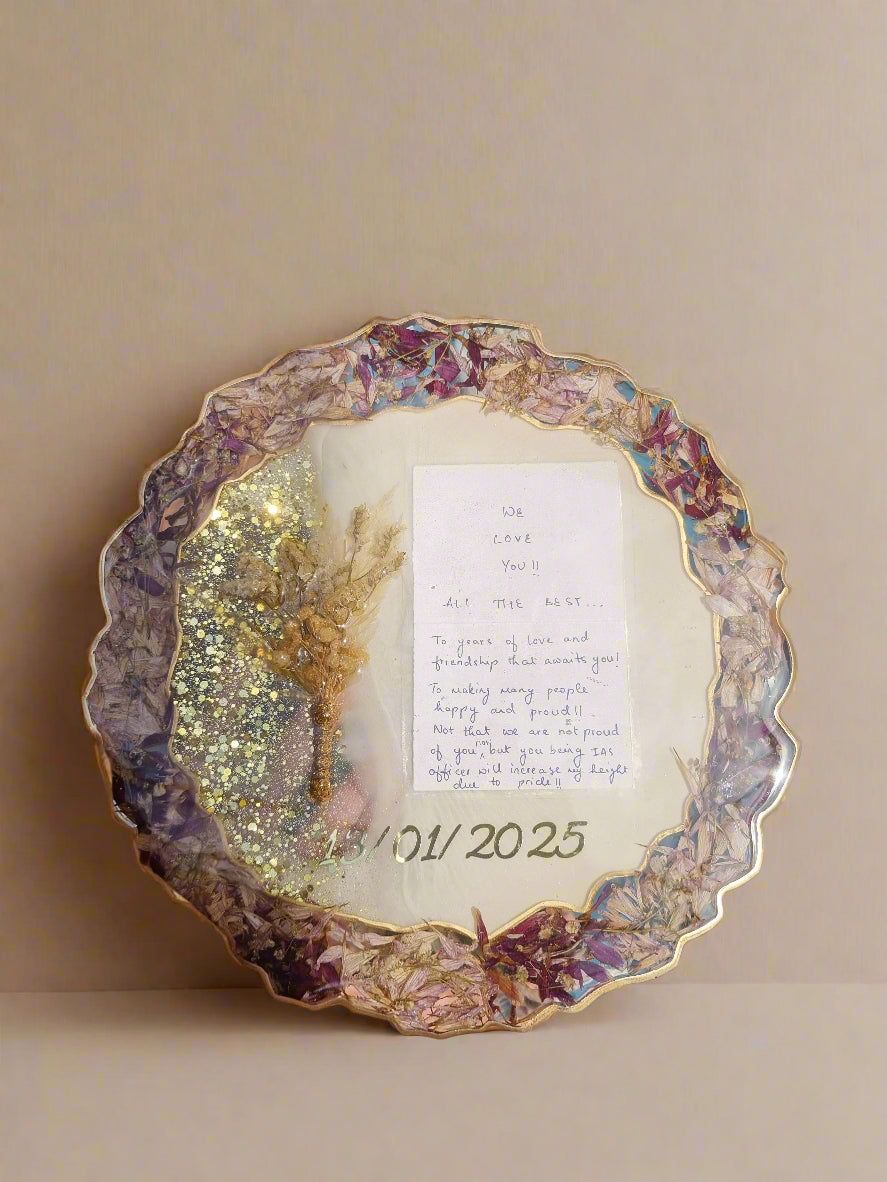 WE
LOVE
YOU!!
ALL THE BEST...
To years of love and
friendship that awaits you!
To making many people
happy and proud!!
Not that we are not proud
of you now but you being IAS
officer will increase my height
due to pride!!
13/01/2025